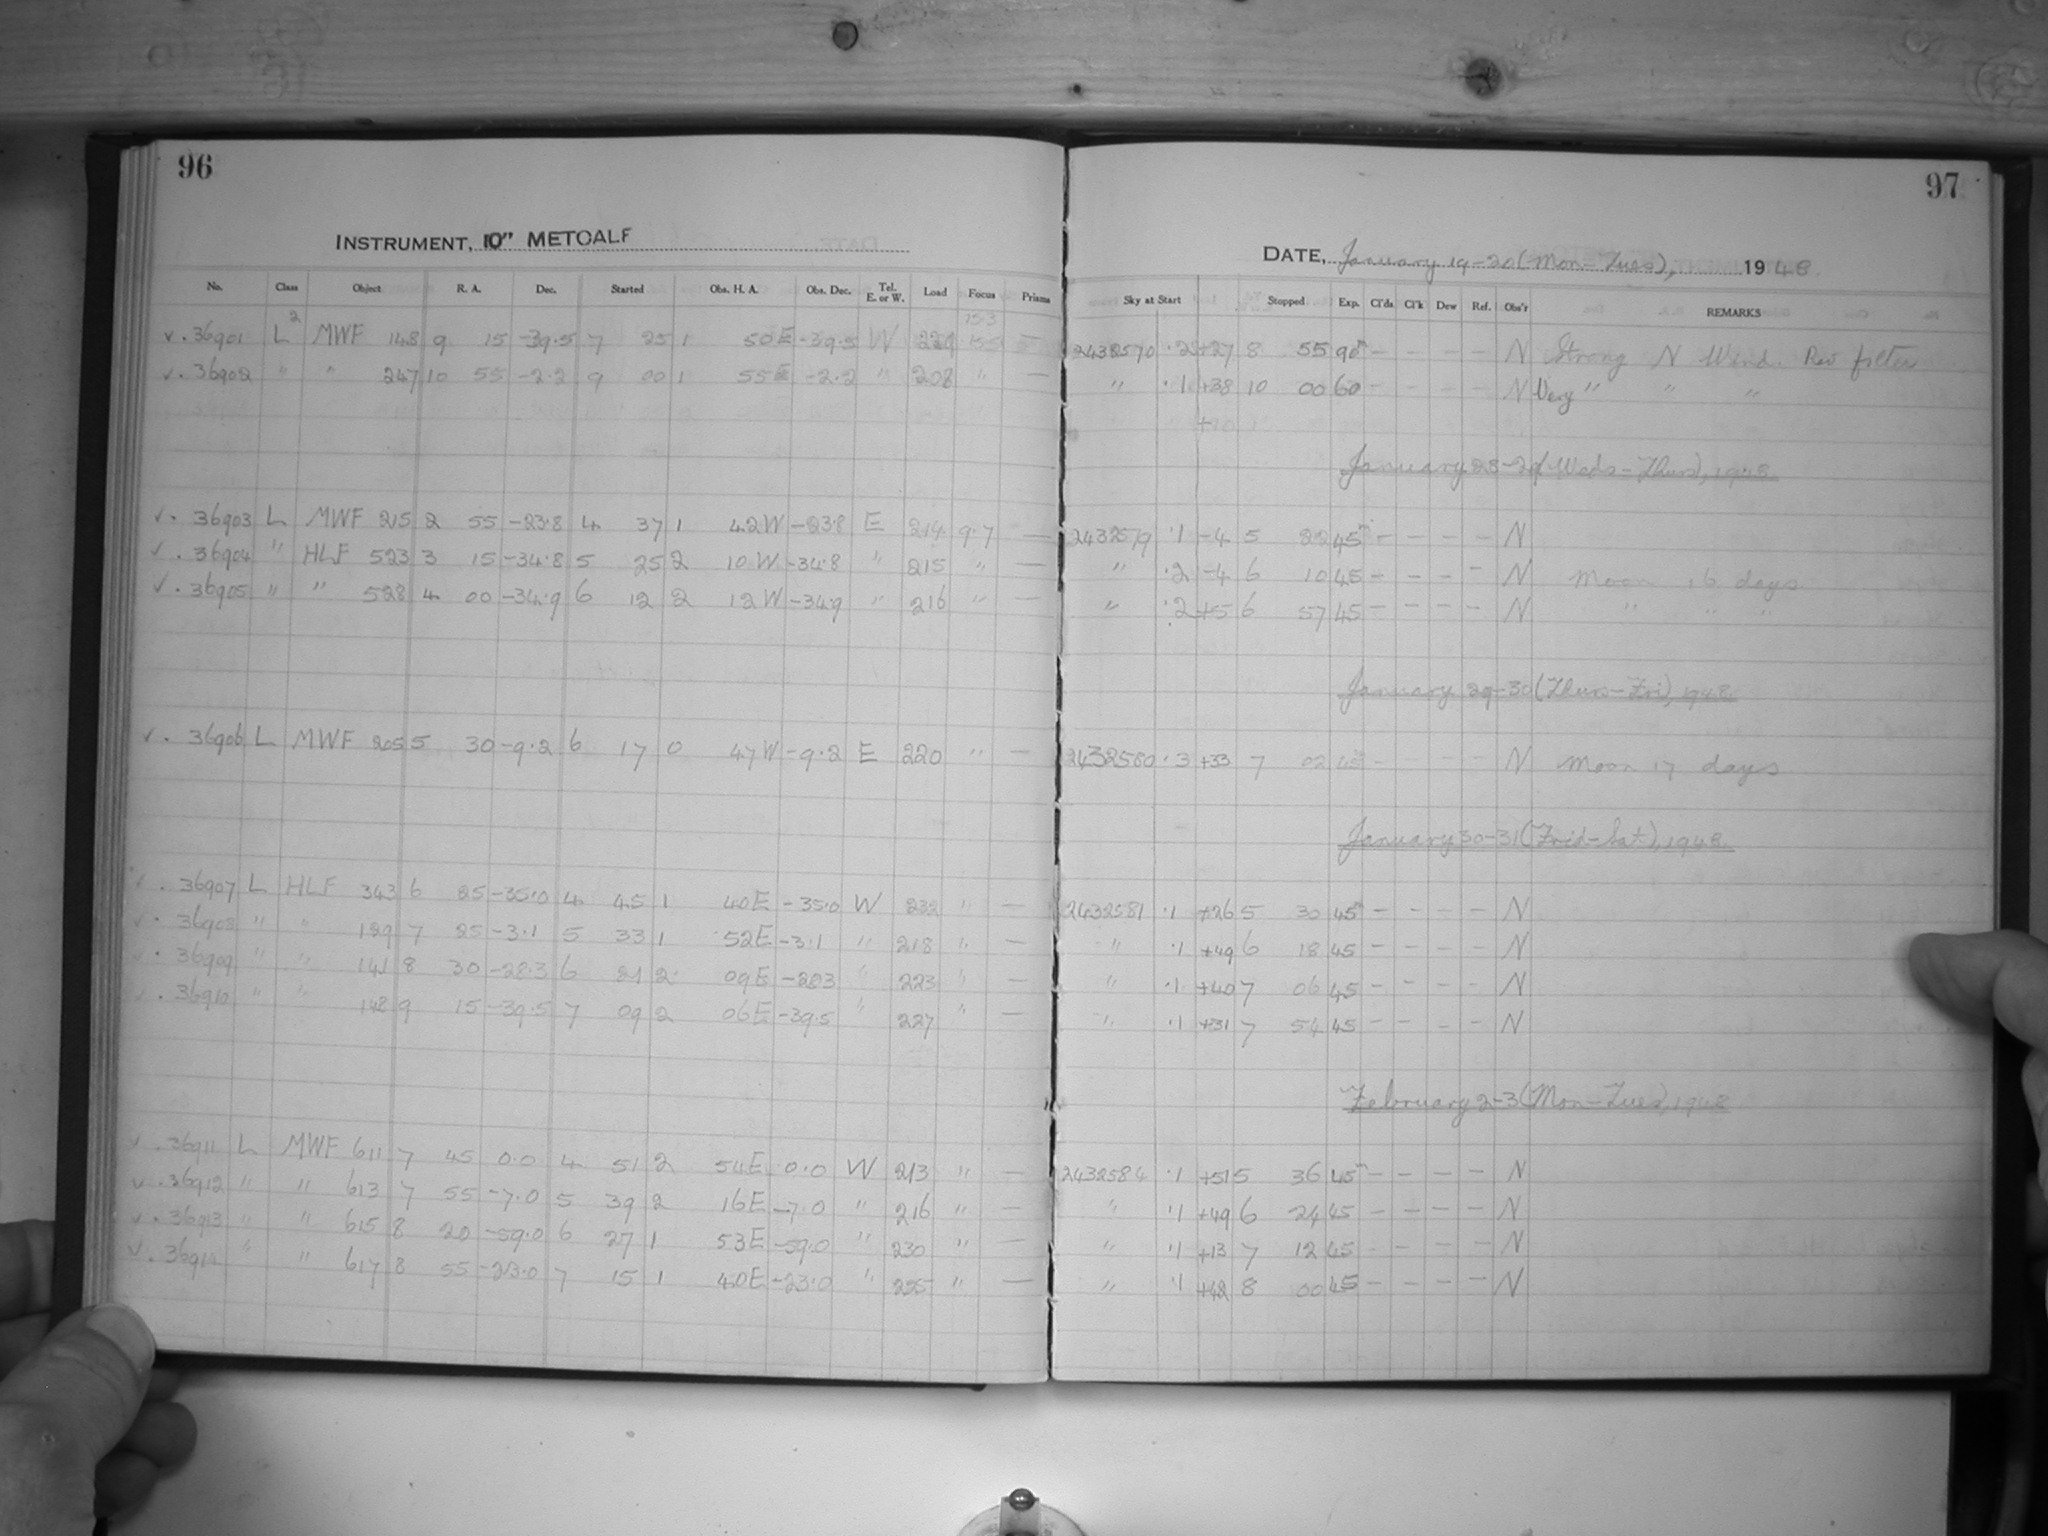 96
INSTRUMENT, 10" METCALF
No. Class Object R. A. Dec. Started Obs. H. A. Obs. Dec. Tel. E. or W. Load Focus Prisms
✓. 36901 L² MWF 148 9 15 -39.5 7 25 1 50E -39.5 W
✓. 36902 " " 247 10 55 -2.2 9 00 1 55E -2.2 " 208 " —
✓. 36903 L MWF 215 2 55 -23.8 4 37 1 42W -23.8 E 214 9.7 —
✓. 36904 " HLF 523 3 15 -34.8 5 25 2 10W -34.8 " 215 " —
✓. 36905 " " 528 4 00 -34.9 6 12 2 12W -34.9 " 216 " —
✓. 36906 L MWF 205 5 30 -9.2 6 17 0 47W -9.2 E 220 " —
✓. 36907 L HLF 343 6 25 -35.0 4 45 1 40E -35.0 W 232 " —
✓. 36908 " " 129 7 25 -3.1 5 33 1 52E -3.1 " 218 " —
✓. 36909 " " 141 8 30 -28.3 6 21 2 09E -28.3 " 223 " —
✓. 36910 " " 148 9 15 -39.5 7 09 2 06E -39.5 " 227 " —
✓. 36911 L MWF 611 7 45 0.0 4 51 2 54E 0.0 W 213 " —
✓. 36912 " " 613 7 55 -7.0 5 39 2 16E -7.0 " 216 " —
✓. 36913 " " 615 8 20 -59.0 6 27 1 53E -59.0 " 230 " —
✓. 36914 " " 617 8 55 -23.0 7 15 1 40E -23.0 " 225 " —
97
DATE, January 19-20 (Mon-Tues), 1948
Sky at Start Stopped Exp. Cl'ds Cl'k Dew Ref. Obs'r REMARKS
2432570 .2 +27 8 55 90m - - - - N Strong N Wind. Red filter
" .1 +38 10 00 60 - - - - N Very " " "
January 28-29 (Weds-Thurs), 1948
2432579 .1 -4 5 22 45m - - - - N
" .2 -4 6 10 45 - - - - N Moon 16 days
" .2 +5 6 57 45 - - - - N " " "
January 29-30 (Thurs-Fri), 1948
2432580 .3 +33 7 02 45 - - - - N Moon 17 days
January 30-31 (Frid-Sat), 1948
2432581 .1 +26 5 30 45m - - - - N
" .1 +49 6 18 45 - - - - N
" .1 +40 7 06 45 - - - - N
" .1 +31 7 54 45 - - - - N
February 2-3 (Mon-Tues), 1948
2432584 .1 +51 5 36 45m - - - - N
" .1 +49 6 24 45 - - - - N
" .1 +13 7 12 45 - - - - N
" .1 +42 8 00 45 - - - - N